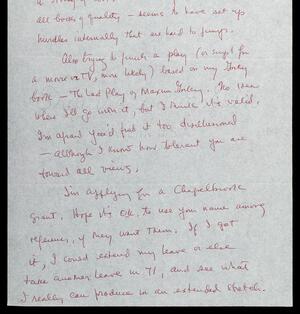 all books of quality — seems to have set up
hurdles internally that are hard to jump.
Also trying to finish a play (or script for
a movie or TV, more likely) based on my Gorky
book — The Last Play of Maxim Gorky. No idea
where I'll go with it, but I think it's valid.
I'm afraid you'd find it too disillusioned
— although I know how tolerant you are
toward all views.
I'm applying for a Chapelbrook
grant. Hope it's O.K. to use your name among
references, if they want them. If I get
it, I could extend my leave or else
take another leave in 71, and see what
I really can produce in an extended stretch.